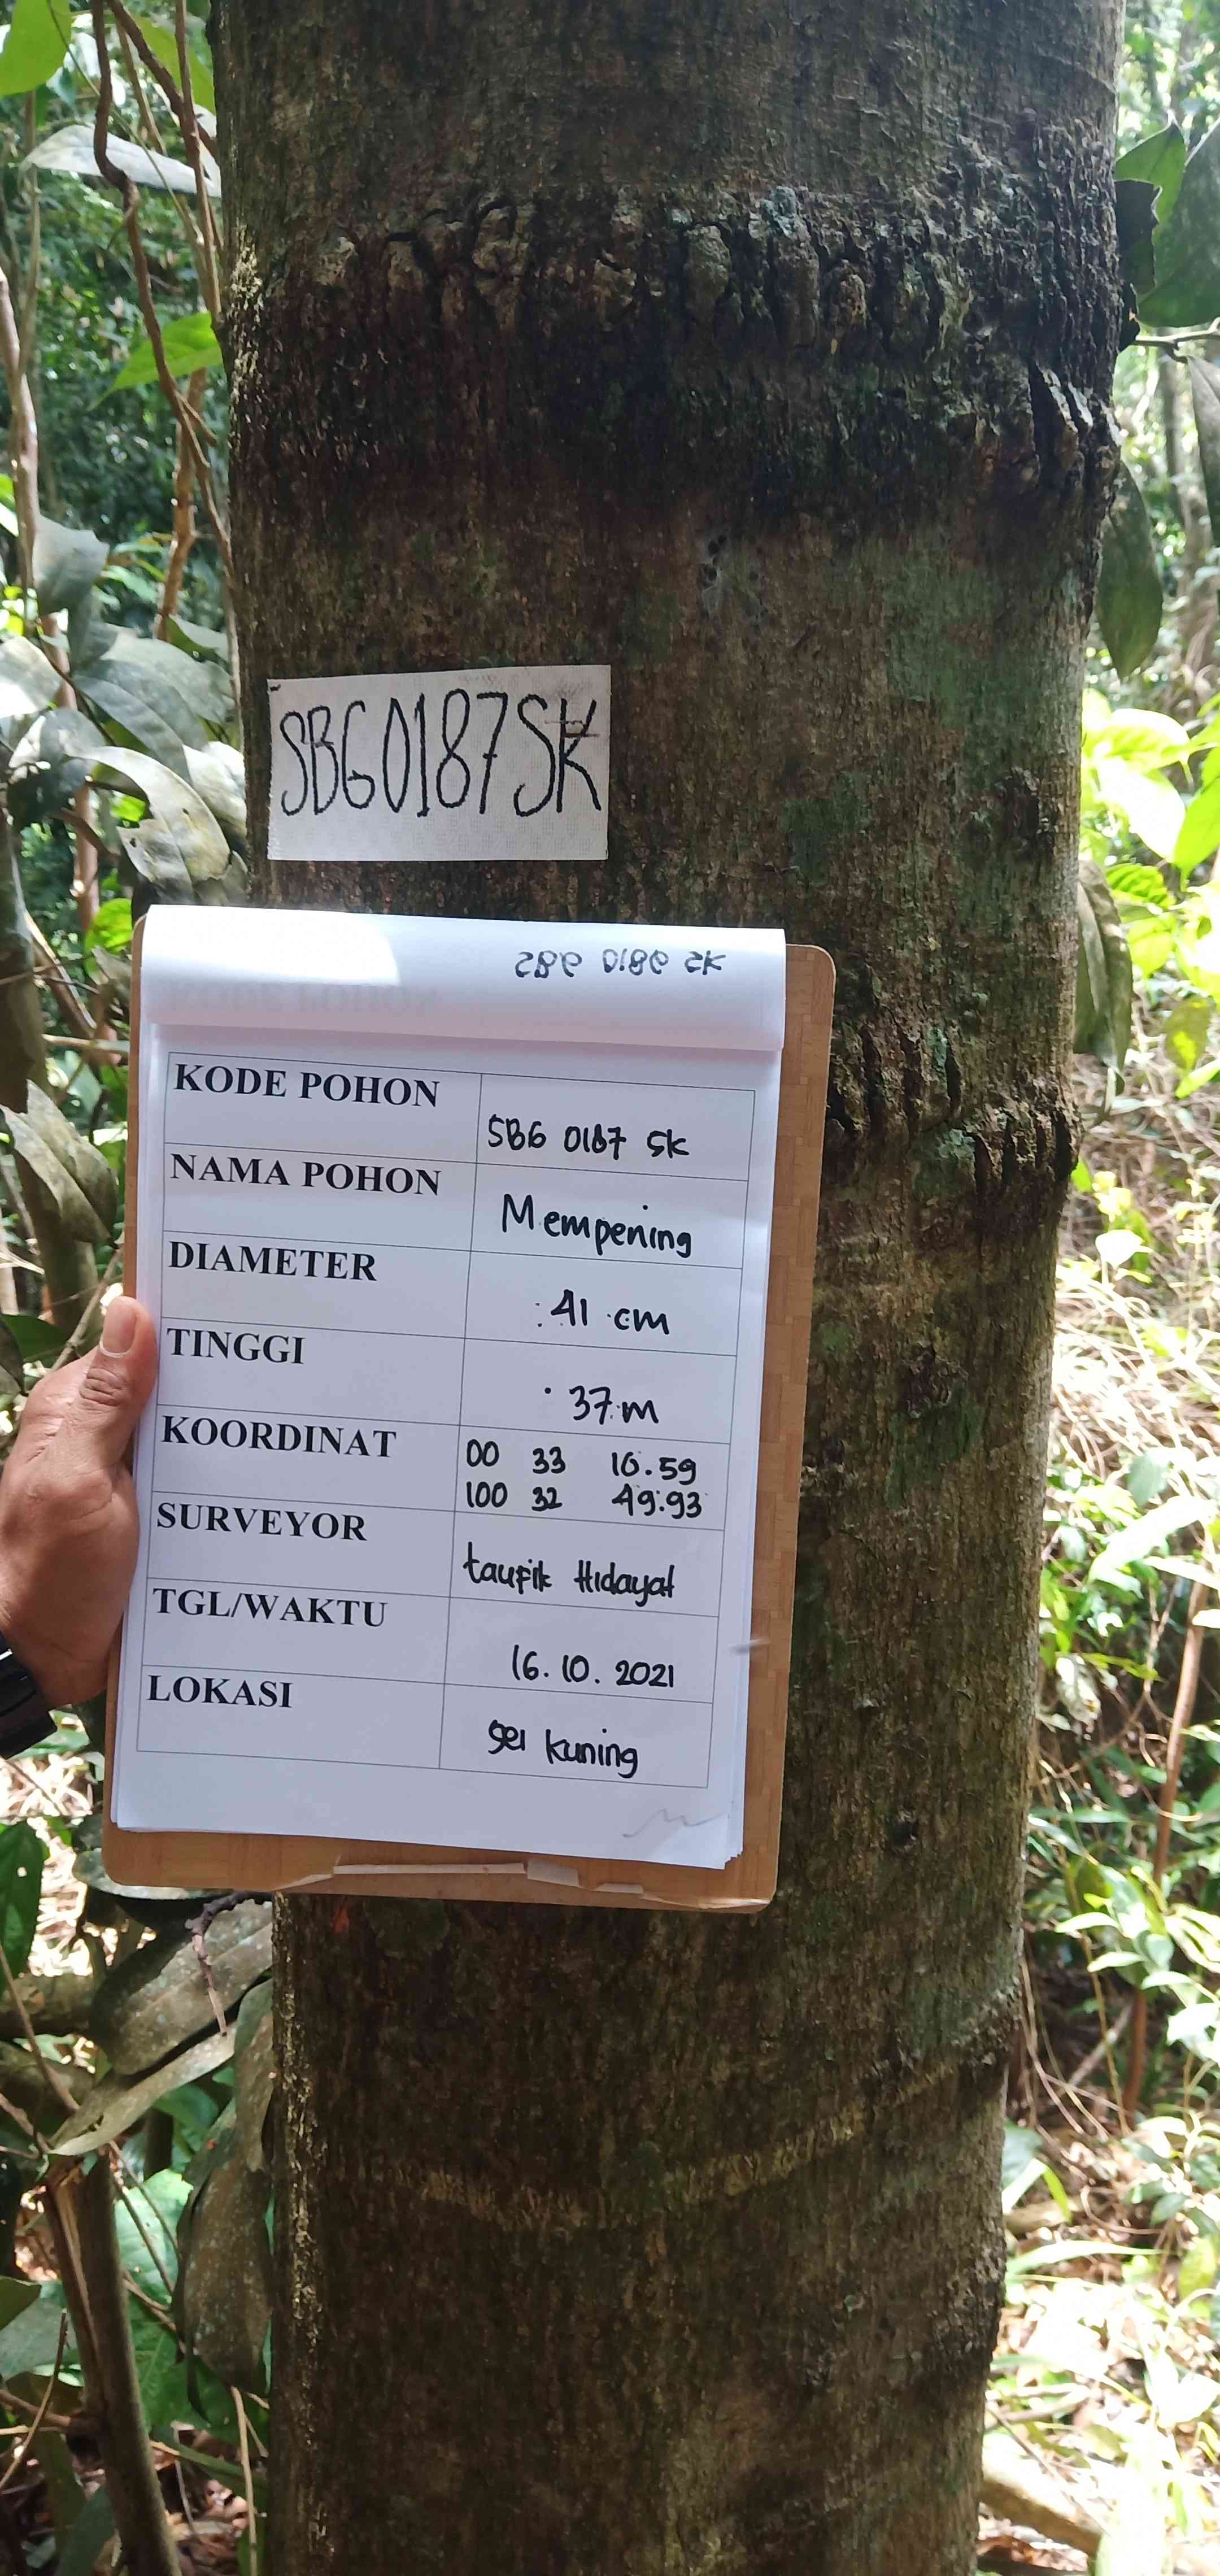 SBG0187SK
SBG 0186 SK
KODE POHON
SBG 0187 SK
NAMA POHON
Mempening
DIAMETER
: 41 cm
TINGGI
37 m
KOORDINAT
00 33 16.59
100 32 49.93
SURVEYOR
taufik Hidayat
TGL/WAKTU
16. 10. 2021
LOKASI
Sei Kuning